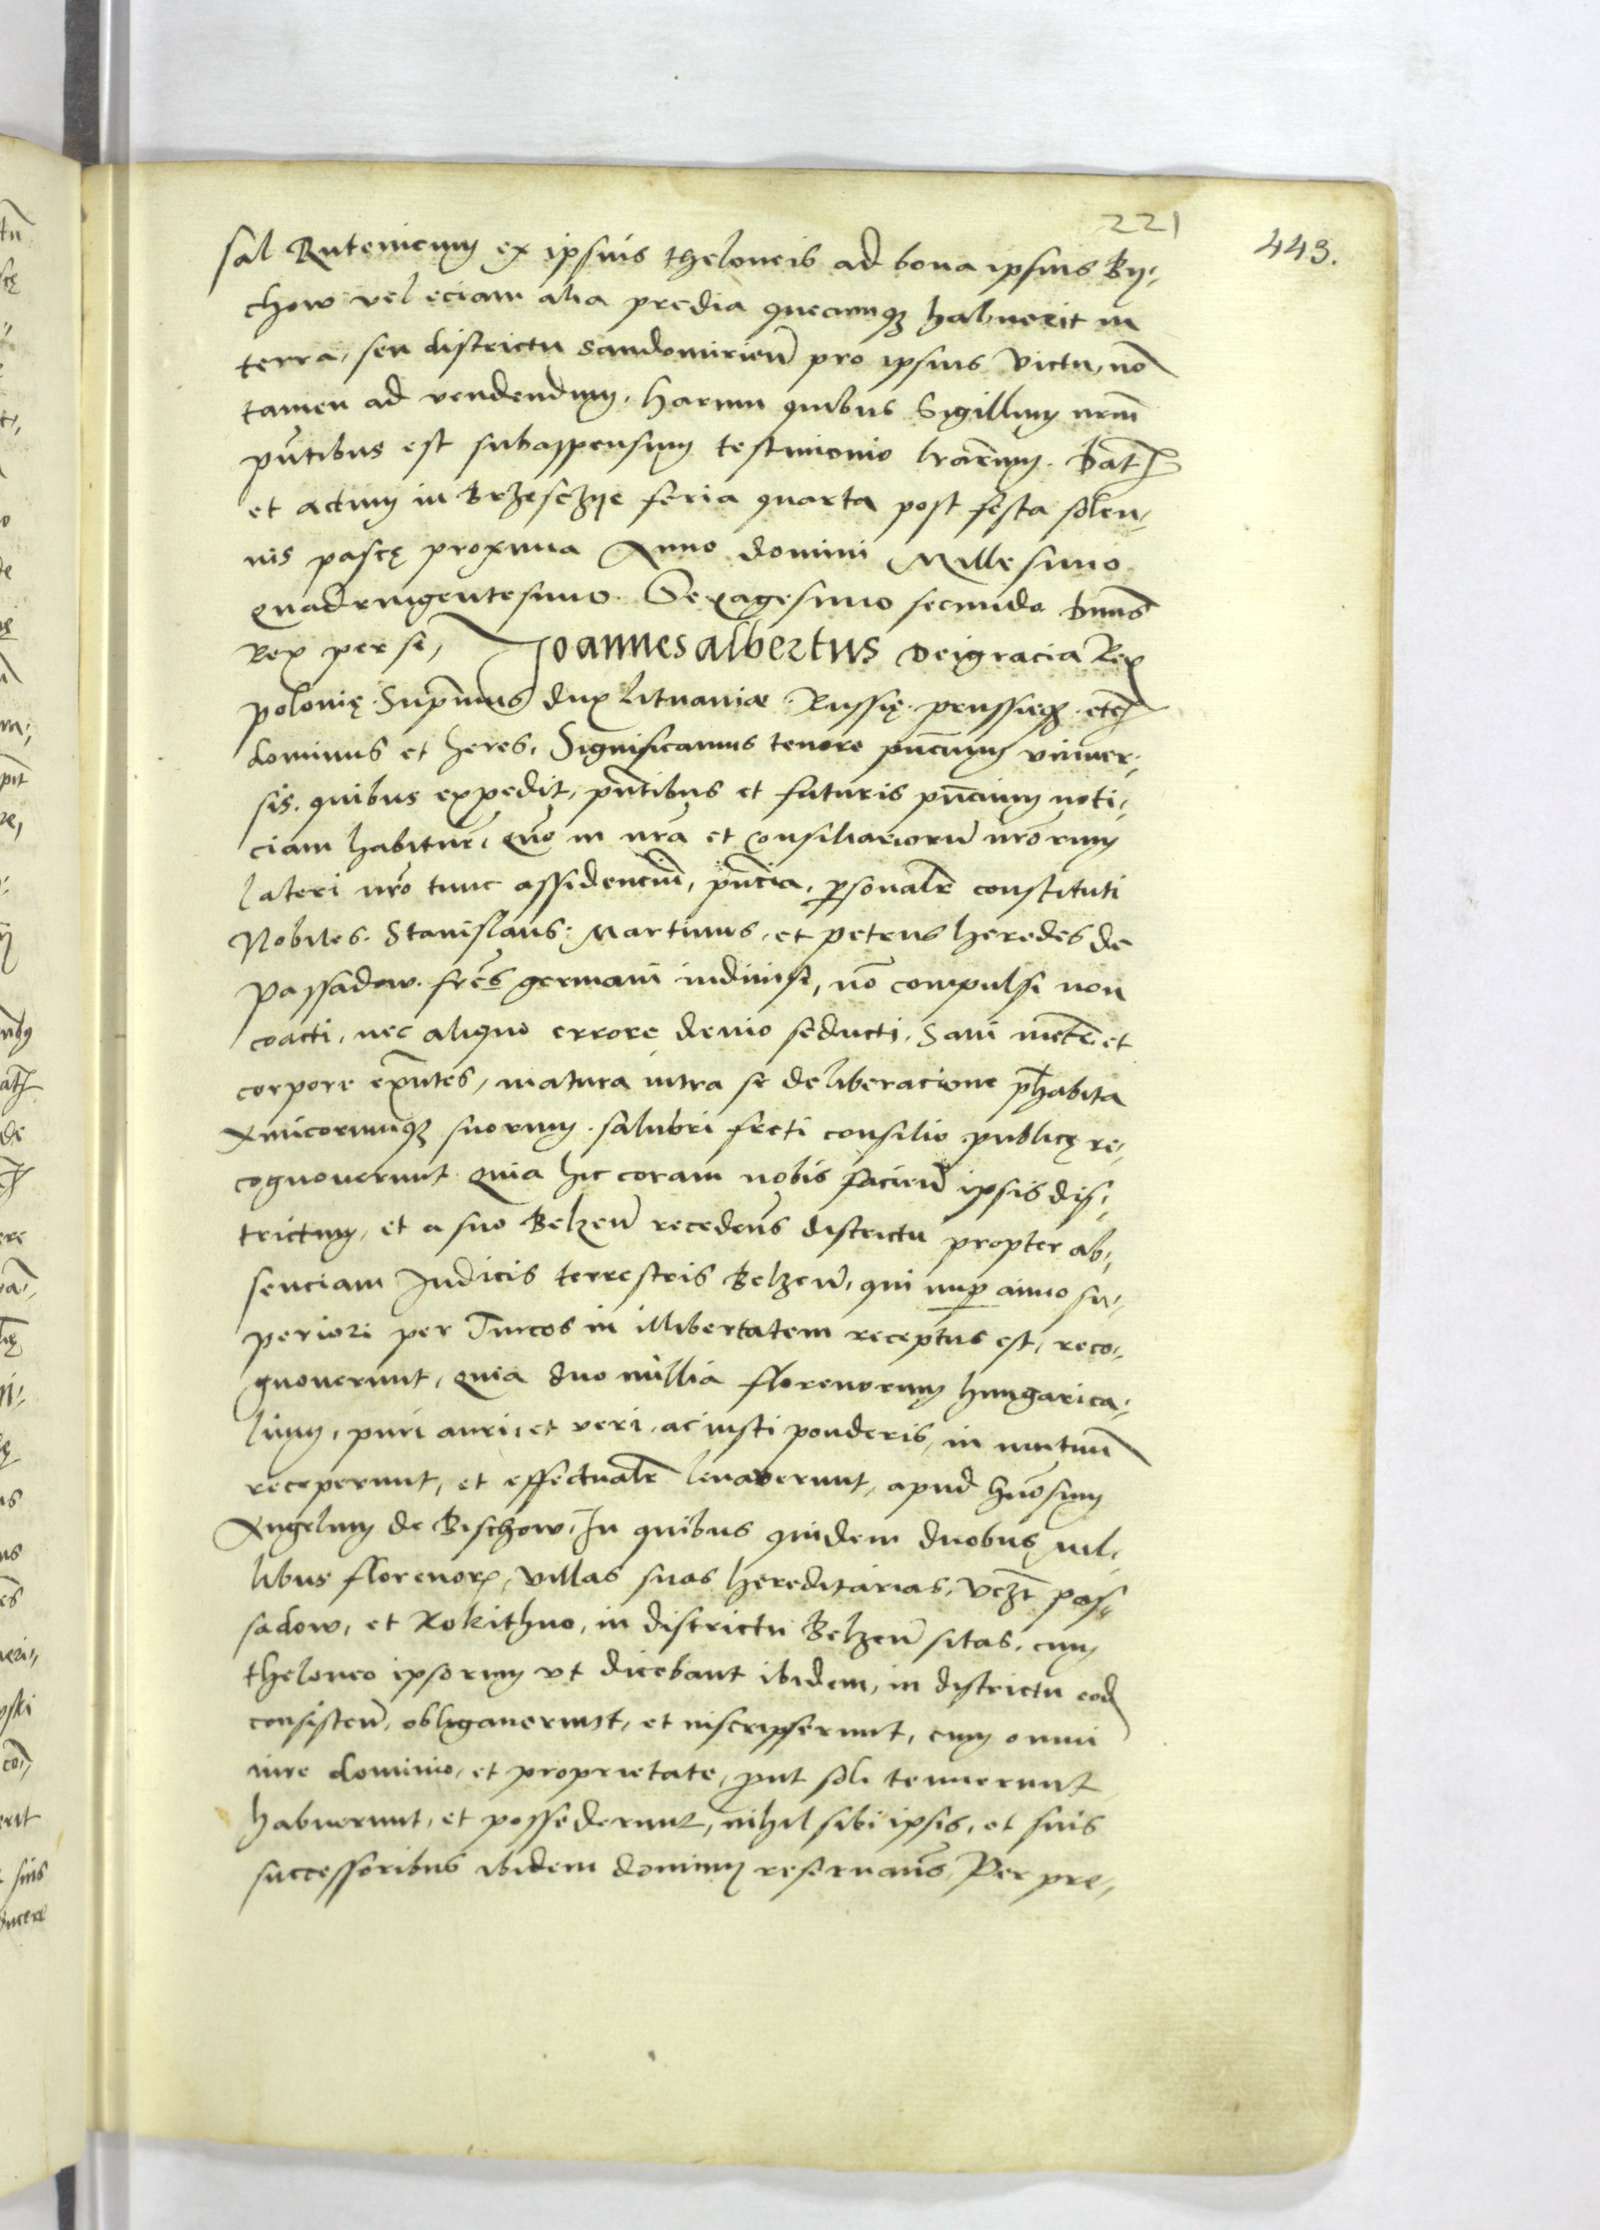 221
443.
sal Rutenicum ex ipsius theloneis ad bona ipsius Bij-
chow vel eciam alia predia quecunqȝ habuerit in
terra, seu districtu Sandomirien̄ pro ipsius victu, nō
tamen ad vendendum. Harum quibus Sigillum nrm̄
pn̄tibus est subappensum testimonio lrārum. Dat̄
et actum in Brzesczije feria quarta post festa solen-
nis pascę proxima Anno domini Millesimo
Quadringentesimo. Sexagesimo secundo Dnūs
Rex per se, Joannes albertus Dei gracia Rex
polonię. Supm̄us dux Lituaniæ. Russię. prussieqȝ. etc̄
dominus et heres, Significamus tenore pn̄cium vniuer-
sis. quibus expedit, pn̄tibus et futuris pn̄cium noti-
ciam habitur̄, Quō in nrā et Consiliariorū nrōrum
lateri nrō tunc assidenciū, pn̄cia, psonalr̄ constituti
Nobiles. Stanislaus. Martinus, et petrus heredes de
Passadow. frēs germani indiuisi, nō compulsi non
coacti, nec aliquo errore deuio seducti, Sani mēte et
corpore exn̄tes, matura intra se deliberacione p̄habita
Amicorumqȝ suorum. salubri freti consilio publicę re-
cognouerunt. Quia hic coram nobis facien̄ ipsis dis-
trictum, et a suo Belzen̄ recedens̄ districtu propter ab-
senciam Judicis terrestris Belzen̄, qui nup anno su-
periori per Turcos in illibertatem receptus est, reco-
gnouerunt, Quia duo millia florenorum hungarica-
lium, puri auri, et veri, ac iusti ponderis, in mutuū
receperunt, et effectualr̄ leuauerunt, apud Gn̄osum
Angelum de Bischow, In quibus quidem duobus mil-
libus florenorꝝ, villas suas hereditarias, vczt̄ Pas-
sadow, et Rokithno, in districtu Belzen̄ sitas, cum
theloneo ipsorum vt dicebant ibidem, in districtu eod̄
consisten̄, obligauerunt, et inscripserunt, cum omni
iure dominio, et proprietate, put soli tenuerunt
habuerunt, et possederunt, nihil sibi ipsis, et suis
successoribus ibidem dominij reseruans̄, Per pre-